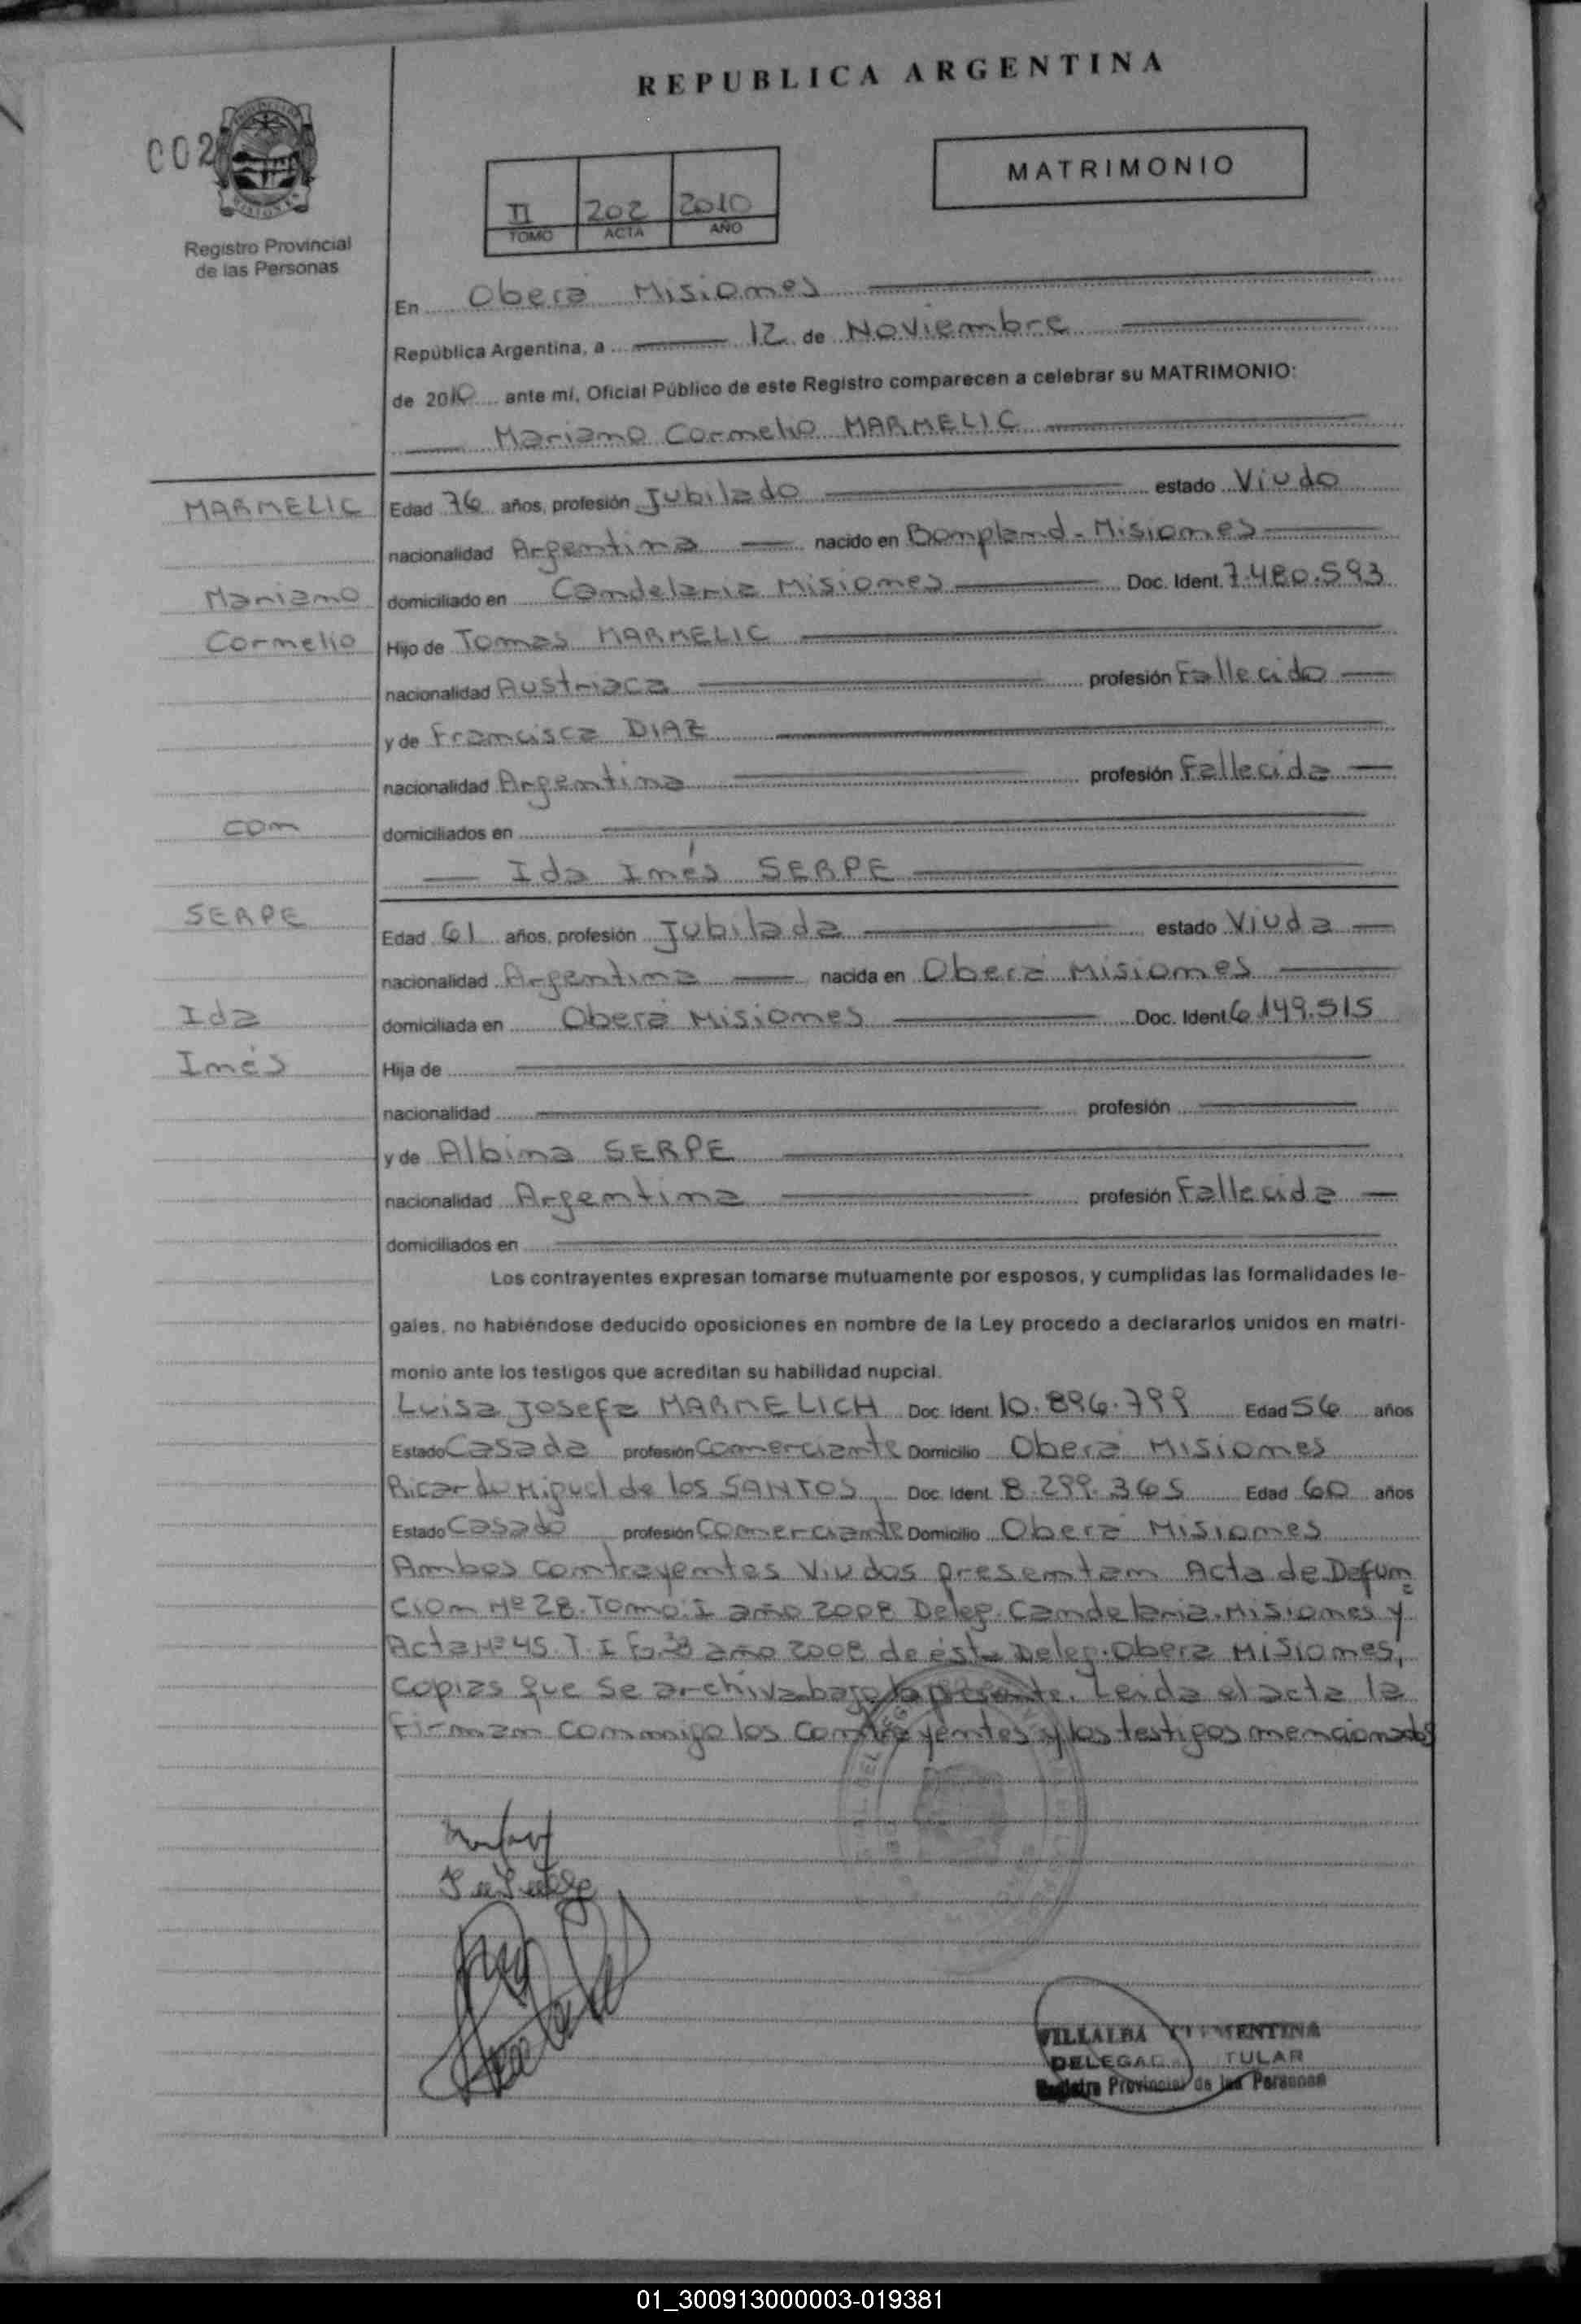 REPUBLICA ARGENTINA
002
MATRIMONIO
II 202 2010
TOMO ACTA AÑO
Registro Provincial
de las Personas
En Oberá Misiones
República Argentina, a 12 de Noviembre
de 2010 ante mí, Oficial Público de este Registro comparecen a celebrar su MATRIMONIO:
Mariano Cornelio MARMELIC
MARMELIC
Edad 76 años, profesión Jubilado estado Viudo
nacionalidad Argentina nacido en Bonpland - Misiones
Mariano
domiciliado en Candelaria Misiones Doc. Ident. 7.480.593
Cornelio
Hijo de Tomas MARMELIC
nacionalidad Austriaca profesión Fallecido
y de Francisca DIAZ
nacionalidad Argentina profesión Fallecida
con
domiciliados en
Ida Inés SERPE
SERPE
Edad 61 años, profesión Jubilada estado Viuda
nacionalidad Argentina nacida en Oberá Misiones
Ida
domiciliada en Oberá Misiones Doc. Ident 6.149.515
Inés
Hija de
nacionalidad profesión
y de Albina SERPE
nacionalidad Argentina profesión Fallecida
domiciliados en
Los contrayentes expresan tomarse mutuamente por esposos, y cumplidas las formalidades le-
gales, no habiéndose deducido oposiciones en nombre de la Ley procedo a declararlos unidos en matri-
monio ante los testigos que acreditan su habilidad nupcial.
Luisa Josefa MARMELICH Doc. Ident. 10.896.799 Edad 56 años
Estado Casada profesión Comerciante Domicilio Oberá Misiones
Ricardo Miguel de los SANTOS Doc. Ident. 8.299.365 Edad 60 años
Estado Casado profesión Comerciante Domicilio Oberá Misiones
Ambos contrayentes Viudos presentan Acta de Defun
cion Nº 28. Tomo I año 2008 Deleg. Candelaria. Misiones y
Acta Nº 45. T. I año 2008 de ésta Deleg. Oberá Misiones,
copias que se archiva bajo la presente. Leida el acta la
firman conmigo los contrayentes y los testigos mencionados
VILLALBA CLEMENTINA
DELEGADA TITULAR
Registro Provincial de las Personas
01_300913000003-019381